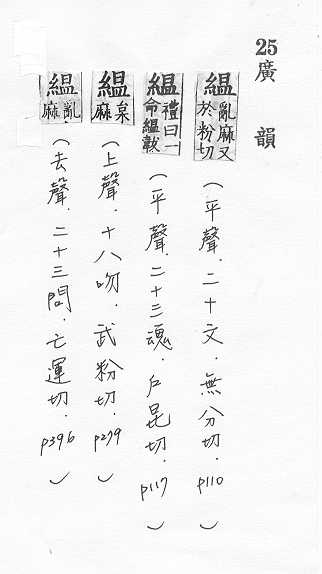 25廣韻
縕亂麻又於粉切（平聲．二十文．無分切．p110）
縕禮曰一命縕韍（平聲．二十三魂．戶昆切．p117）
縕枲麻（上聲．十八吻．武粉切．p279）
縕亂麻（去聲．二十三問．亡運切．p396）